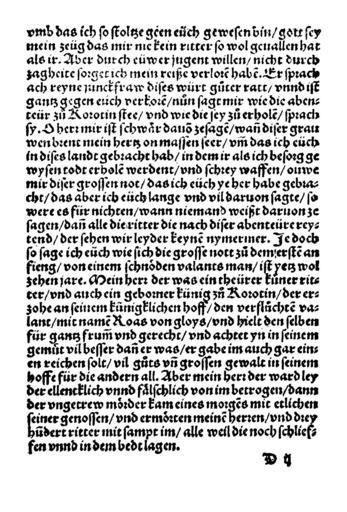 vmb das ich so stoltze gēen eüch gewesen bin/ gott sey
mein zeüg das mir nie kein ritter so wol geuallen hat
als ir. Aber durch eüwer jugent willen/ nicht durch
zagheite sorget ich mein reiße verlorē habē. Er sprach
ach reyne junckfraw dises würt gůter ratt/ vnnd ist
gantz gegen euch verkorē/ nūn sagt mir wie die aben-
teür zů Korotin stee/ vnd wie die sey zů erholē/ sprach
sy. O herr mir ist schwår dauō zesagē/ wañ diser grau
wen brent mein hertz on massen seer/ vnd das ich eüch
in dises landt gebracht hab/ in dem ir als ich besorg ge
wysen todt erholē werdent/ vnd schrey waffen/ ouwe
mir diser grossen not/ das ich eüch ye her habe gebra-
cht/ das aber ich eüch lange vnd vil daruon sagte/ so
were es für nichten/ wann niemand weißt daruon ze
sagen/ dañ alle die ritter die nach diser abenteüre rey-
tend/ der sehen wir leyder keynē nymermer. Je doch
so sage ich eüch wie sich die grosse nott zů dem ersten an
fieng/ von einem schnöden valants man/ ist yetz wol
zehen jare. Mein herr der was ein theürer küner rit-
ter/ vnd auch ein geborner künig zů Korotin/ der er-
zohe an seinem künigklichen hoff/ den verflůchtē va-
lant/ mit namē Roas von gloys/ vnd hielt den selben
für gantz frum̄ vnd gerecht/ vnd achtet yn in seinem
gemüt vil besser dañ er was/ er gabe im auch gar ein-
en reichen solt/ vil gůts vñ grossen gewalt in seinem
hoffe für die andern all. Aber mein herr der ward ley
der ellentklich vnnd fålschlich von im betrogen/ dann
der vngetrew mörder kam eines morgēs mit etlichen
seiner genossen/ vnd ermörten meinē herren/ vnd drey
hūdert ritter mit sampt im/ alle weil die noch schlief-
fen vnnd in dem bedt lagen.
D ij